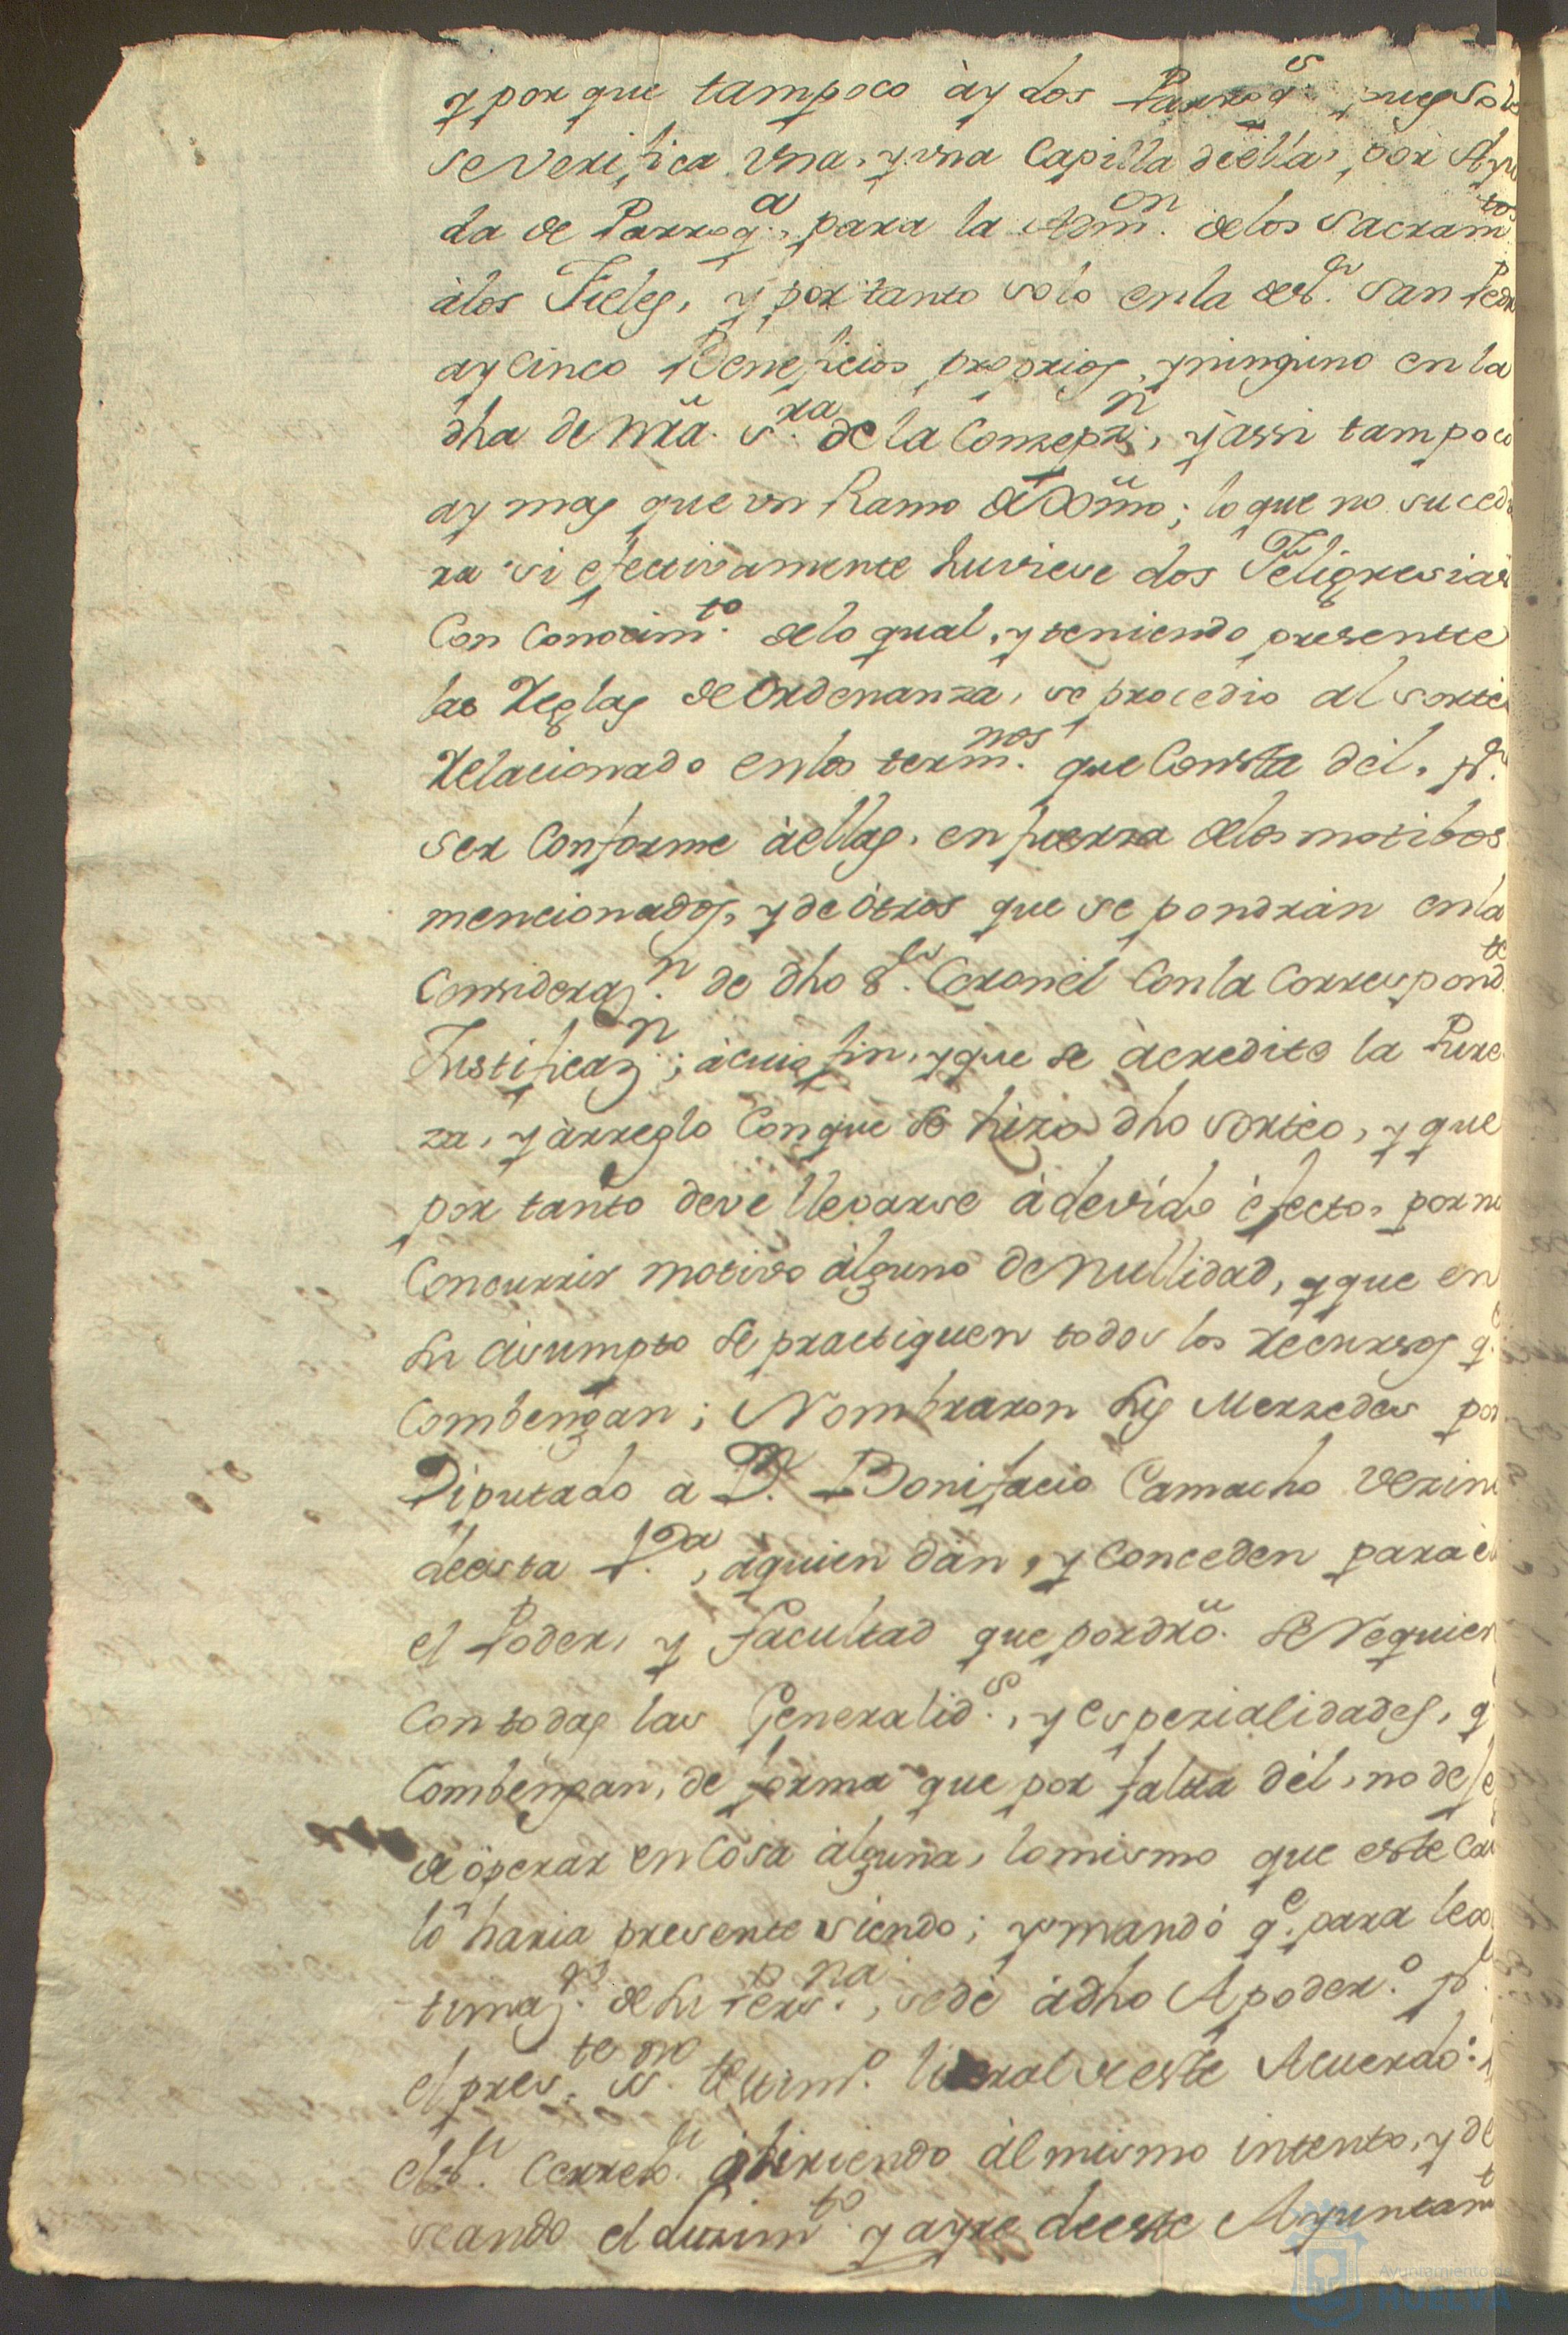 y por que tampoco ày dos Parroq.s pues solo
se verifica Una, y una Capilla de ella, por Ayu
da de Parroq.a, para la Adm.on delos Sacram.tos
àlos Fieles, y por tanto solo enla del S.r San Pedro
ay cinco Beneficios proprios, y ninguno en la
dha de Nrã. S.ra de la Conzepz.n, y àssi tampoco
ay mas que un Ramo de Dõmo; lo que no sucedi
ra si efectivamente huviese dos Feligresias
Con Conocim.to delo qual, y teniendo presentte
las Reglas de Ordenanza, se procedio al sorteo
Relacionado enlos term.nos que Consta dèl, p.r
ser Conforme àellas, en fuerza delos motibos
mencionados, y de òtros que se pondràn enla
Consideraz.n de dho S.or Coronèl Conla Correspond.te
Justificaz.n; àcuio fin, y que se àcredite la Pure
za, y àrreglo Conque se hizo dho sorteo, y que
por tanto deve llevarse àdevido èfecto, por no
Concurrir motivo àlguno de Nullidad, y que en
su àsumpto se practiquen todos los Recursos q.e
Combengan; Nombraron sus Merzedes por
Diputado à D.n Bonifacio Camacho Vezino
de esta V.da, àquien dàn, y Conceden para èl
el Poder, y facultad que por dró. se requier
Con todas las Generalid.s, y espezialidades, q
Combengan, de forma que por falta dèl, no deje
de òperar en Cosa àlguna, lo mismo que este Cav
lo haria presente siendo; y mandó q.e para lexi
timaz.n de su Pers.na, se dè àdho Apoder.o p.r
el pres.te ss.no testim.o literal de este Acuerdo: Y
el S.r Correx.r àtiriendo àl mismo intento, y de
seando el luzim.to y ayre de este Ayuntam.to